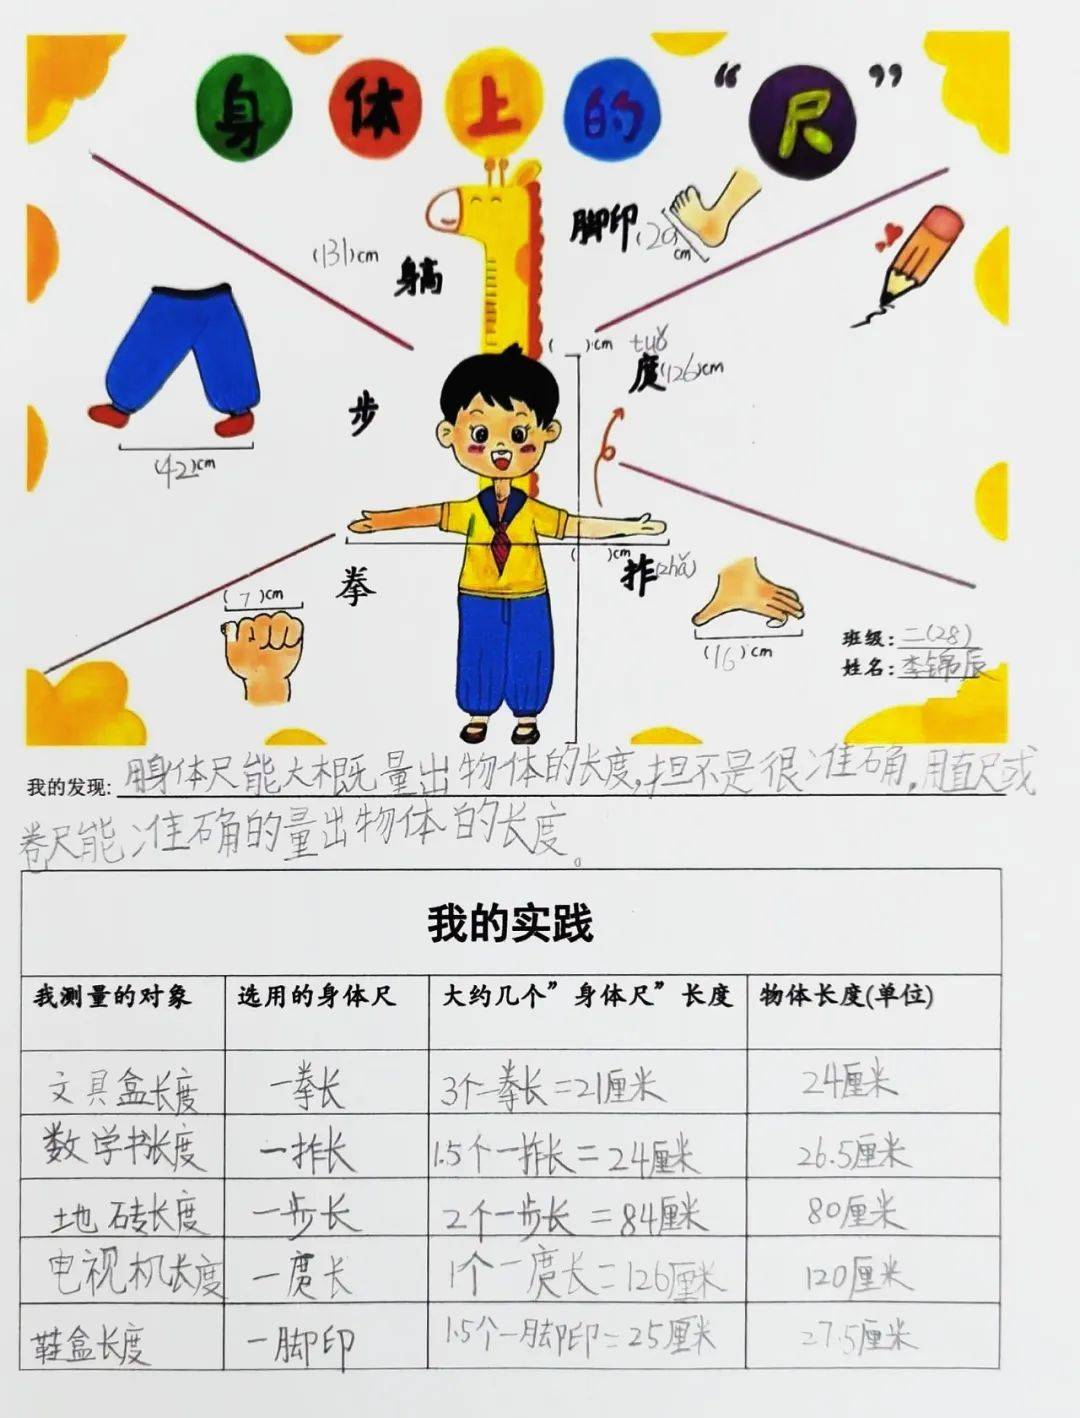 身体上的“尺”
(131)cm
身高
脚印(20)cm
(    )cm
tuǒ
度(126)cm
步
(42)cm
(    )cm
拃(zhǎ)
拳
(7)cm
(16)cm
班级:二(28)
姓名:李锦辰
我的发现:用身体尺能大概量出物体的长度,担不是很准确,用直尺或
卷尺能准确的量出物体的长度。
我的实践
我测量的对象 选用的身体尺 大约几个”身体尺”长度 物体长度(单位)
文具盒长度 一拳长 3个一拳长=21厘米 24厘米
数学书长度 一拃长 1.5个一拃长=24厘米 26.5厘米
地砖长度 一步长 2个一步长=84厘米 80厘米
电视机长度 一度长 1个一度长=126厘米 120厘米
鞋盒长度 一脚印 1.5个一脚印=25厘米 27.5厘米